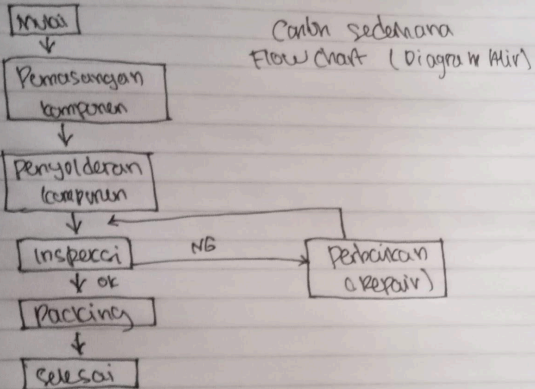 Mulai
Contoh sederhana
Flow Chart (Diagram Alir)
Pemasangan
komponen
Penyolderan
komponen
Inspecci
NG
Perbaikan
(Repair)
OK
Packing
Selesai